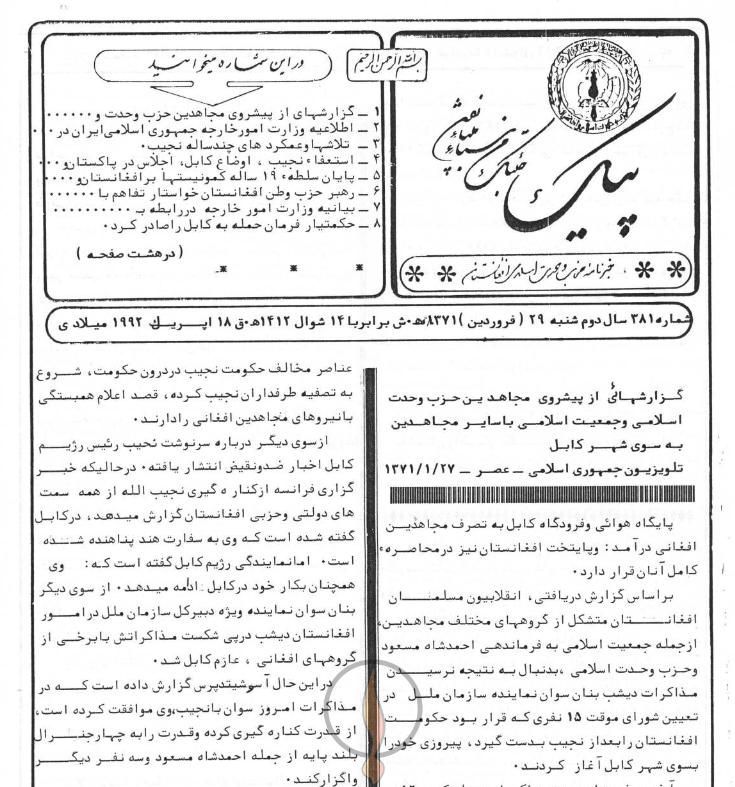 بسم الله الرحمن الرحیم
در این شماره میخوانید
۱ ـ گزارشهای از پیشروی مجاهدین حزب وحدت و ۰۰۰۰۰۰
۲ ـ اطلاعیه وزارت امور خارجه جمهوری اسلامی ایران در ۰۰۰
۳ ـ تلاشها وعمکرد های چندساله نجیب۰
۴ ـ استعفاء نجیب ، اوضاع کابل، اجلاس در پاکستان و ۰۰۰
۵ ـ پایان سلطهء ۱۹ ساله کمونیستها بر افغانستان و ۰۰۰۰
۶ ـ رهبر حزب وطن افغانستان خواستار تفاهم با ۰۰۰۰۰۰
۷ ـ بیانیه وزارت امور خارجه دررابطه بـ ۰۰۰۰۰۰۰۰۰۰
۸ ـ حکمتیار فرمان حمله به کابل راصادر کرد۰
( درهشت صفحه )
* * *
پیک
خبرنامه حزب وحدت اسلامی افغانستان
شماره ۳۸۱ سال دوم شنبه ۲۹ ( فروردین )۱۳۷۱هـ۰ش برابربا ۱۴ شوال ۱۴۱۲هـ۰ق ۱۸ اپـریـل ۱۹۹۲ میلادی
گـزارشهـائی از پیشروی مجاهدین حزب وحدت
اسلامی وجمعیت اسلامی باسایر مجاهدین
به سوی شهر کابل
تلویزیون جمهوری اسلامی ــ عصر ــ ۱۳۷۱/۱/۲۷
پایگاه هوائی وفرودگاه کابل به تصرف مجاهدین
افغانی درآمد: وپایتخت افغانستان نیز درمحاصره۰
کامل آنان قرار دارد۰
براساس گزارش دریافتی، انقلابیون مسلمـــان
افغانـــستان متشکل از گروههای مختلف مجاهدین،
ازجمله جمعیت اسلامی به فرماندهی احمدشاه مسعود
وحزب وحدت اسلامی ،بدنبال به نتیجه نرسیـــدن
مذاکرات دیشب بنان سوان نماینده سازمان ملل در
تعیین شورای موقت ۱۵ نفری که قرار بود حکومـــت
افغانستان رابعداز نجیب بدست گیرد، پیروزی خودرا
بسوی شهر کابل آغاز کردند۰
عناصر مخالف حکومت نجیب دردرون حکومت، شـــروع
به تصفیه طرفداران نجیب کرده، قصد اعلام همبستگی
بانیروهای مجاهدین افغانی رادارند۰
ازسوی دیگر درباره سرنوشت نجیب رئیس رژیـــم
کابل اخبار ضدونقیض انتشار یافته۰ درحالیکه خبـــر
گزاری فرانسه ازکناره گیری نجیب الله از همه سمت
های دولتی وحزبی افغانستان گزارش میدهد، درکابـل
گفته شده است که وی به سفارت هند پناهنده شـــده
است۰ امانمایندگی رژیم کابل گفته است که: وی
همچنان بکار خود درکابل ادامه میدهد۰ از سوی دیگر
بنان سوان نماینده ویژه دبیرکل سازمان ملل درامـــور
افغانستان دیشب درپی شکست مذاکراتش بابرخی از
گروههای افغانی ، عازم کابل شد۰
دراین حال آسوشیتدپرس گزارش داده است کـــه در
مذاکرات امروز سوان بانجیب،وی موافقت کرده است،
از قدرت کناره گیری کرده وقدرت رابه چهارجنـــرال
بلند پایه از جمله احمدشاه مسعود وسه نفـر دیگـــر
واگزارکند۰